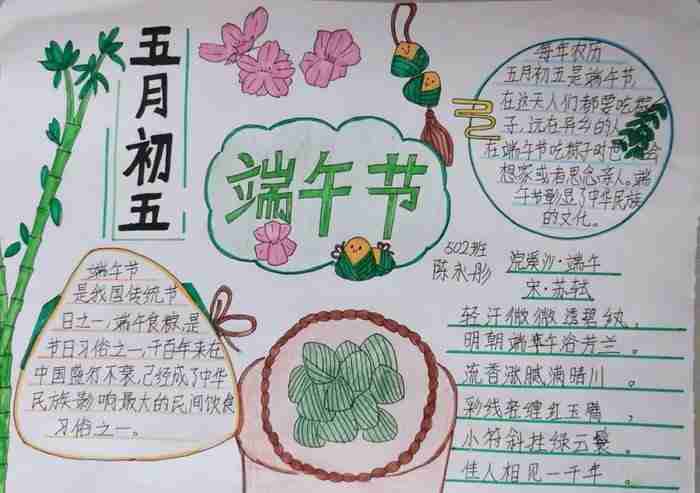 五月初五
端午节
每年农历
五月初五是端午节
在这天人们都要吃粽
子,远在异乡的人
在端午节吃粽子时也会
想家或者思念亲人。端
午节彰显了中华民族
的文化。
502班
陈永彤
端午节
是我国传统节
日之一,端午食粽是
节日习俗之一,千百年来在
中国盛行不衰,已经成了中华
民族影响最大的民间饮食
习俗之一。
浣溪沙·端午
宋·苏轼
轻汗微微透碧纨,
明朝端午浴芳兰。
流香涨腻满晴川。
彩线轻缠红玉臂,
小符斜挂绿云鬟。
佳人相见一千年